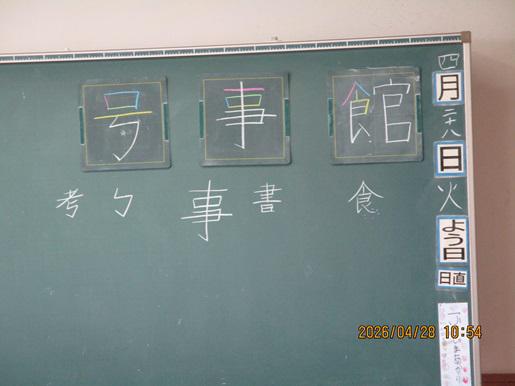 四
月
二十八
日
火
よう日
日直
館 事 号
食 書 事 考 勹
2026/04/28 10:54